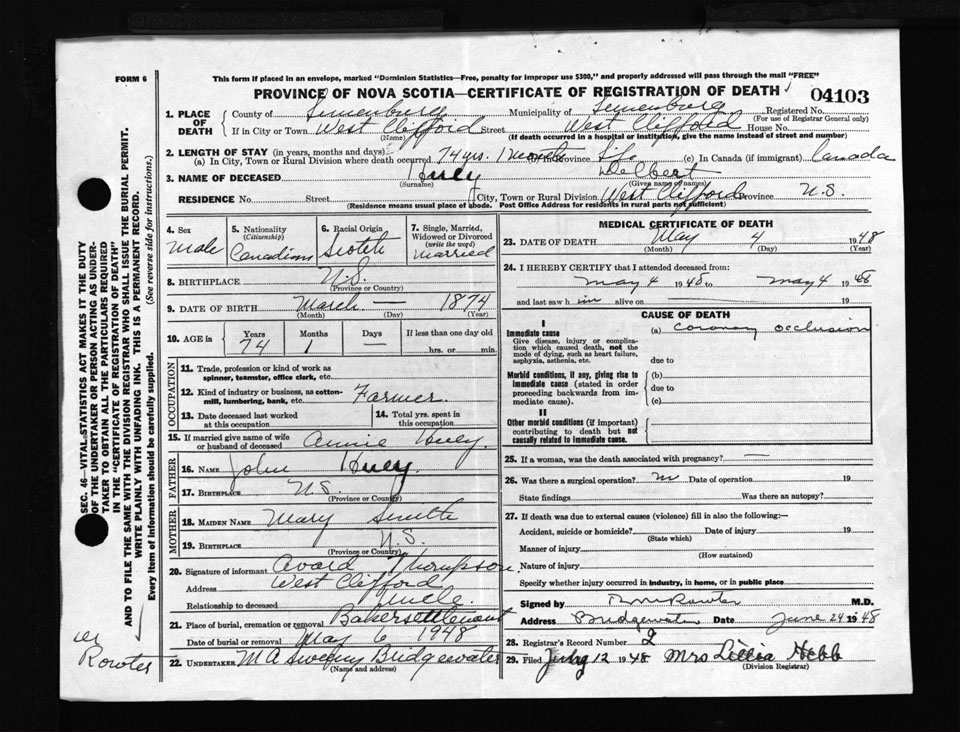 FORM 6
This form if placed in an envelope, marked "Dominion Statistics—Free, penalty for improper use $300," and properly addressed will pass through the mail "FREE"
PROVINCE OF NOVA SCOTIA—CERTIFICATE OF REGISTRATION OF DEATH
04103
1. PLACE OF DEATH
County of Lunenburg Municipality of Lunenburg Registered No.
(For use of Registrar General only)
If in City or Town West Clifford Street West Clifford House No.
(Name) (If death occurred in a hospital or institution, give the name instead of street and number)
2. LENGTH OF STAY (in years, months and days)
(a) In City, Town or Rural Division where death occurred 74 yrs. 1 month Province Life (c) In Canada (if immigrant) Canada
3. NAME OF DECEASED Huey Delbert
(Surname) (Given name or names)
RESIDENCE No. Street City, Town or Rural Division West Clifford Province N.S.
(Residence means usual place of abode. Post Office Address for residents in rural parts not sufficient)
4. Sex Male
5. Nationality (Citizenship) Canadian
6. Racial Origin Scotch
7. Single, Married, Widowed or Divorced (write the word) Married
8. BIRTHPLACE N.S.
(Province or Country)
9. DATE OF BIRTH March — 1874
(Month) (Day) (Year)
10. AGE in Years Months Days If less than one day old
74 1 — hrs. or min.
OCCUPATION
11. Trade, profession or kind of work as spinner, teamster, office clerk, etc.
12. Kind of industry or business, as cotton-mill, lumbering, bank, etc. Farmer.
13. Date deceased last worked at this occupation
14. Total yrs. spent in this occupation
15. If married give name of wife or husband of deceased Annie Huey.
FATHER
16. NAME John Huey.
17. BIRTHPLACE N.S.
(Province or Country)
MOTHER
18. MAIDEN NAME Mary Smith
19. BIRTHPLACE N.S.
(Province or Country)
20. Signature of informant Avard Thompson.
Address West Clifford
Relationship to deceased Uncle.
21. Place of burial, cremation or removal Bakersettlement
Date of burial or removal May 6 1948
22. UNDERTAKER M A Sweeny Bridgewater
(Name and address)
MEDICAL CERTIFICATE OF DEATH
23. DATE OF DEATH May 4 1948
(Month) (Day) (Year)
24. I HEREBY CERTIFY that I attended deceased from:
May 4 1948 to May 4 1948
and last saw h im alive on 19
CAUSE OF DEATH
I
Immediate cause (a) coronary occlusion
Give disease, injury or complication which caused death, not the mode of dying, such as heart failure, asphyxia, asthenia, etc.
due to
Morbid conditions, if any, giving rise to immediate cause (stated in order proceeding backwards from immediate cause).
(b)
due to
(c)
II
Other morbid conditions (if important) contributing to death but not causally related to immediate cause.
25. If a woman, was the death associated with pregnancy? —
26. Was there a surgical operation? no Date of operation 19
State findings Was there an autopsy?
27. If death was due to external causes (violence) fill in also the following:—
Accident, suicide or homicide? Date of injury 19
(State which)
Manner of injury
(How sustained)
Nature of injury
Specify whether injury occurred in industry, in home, or in public place
Signed by M.D.
Address Bridgewater Date June 24 1948
28. Registrar's Record Number 2
29. Filed 12 1948 Mrs Hebb
(Division Registrar)
SEC. 46—VITAL STATISTICS ACT MAKES IT THE DUTY
OF THE UNDERTAKER OR PERSON ACTING AS UNDER-
TAKER TO OBTAIN ALL THE PARTICULARS REQUIRED
IN THE "CERTIFICATE OF REGISTRATION OF DEATH"
AND TO FILE THE SAME WITH THE DIVISION REGISTRAR WHO SHALL ISSUE THE BURIAL PERMIT.
WRITE PLAINLY WITH UNFADING INK. THIS IS A PERMANENT RECORD.
Every item of information should be carefully supplied. (See reverse side for instructions.)